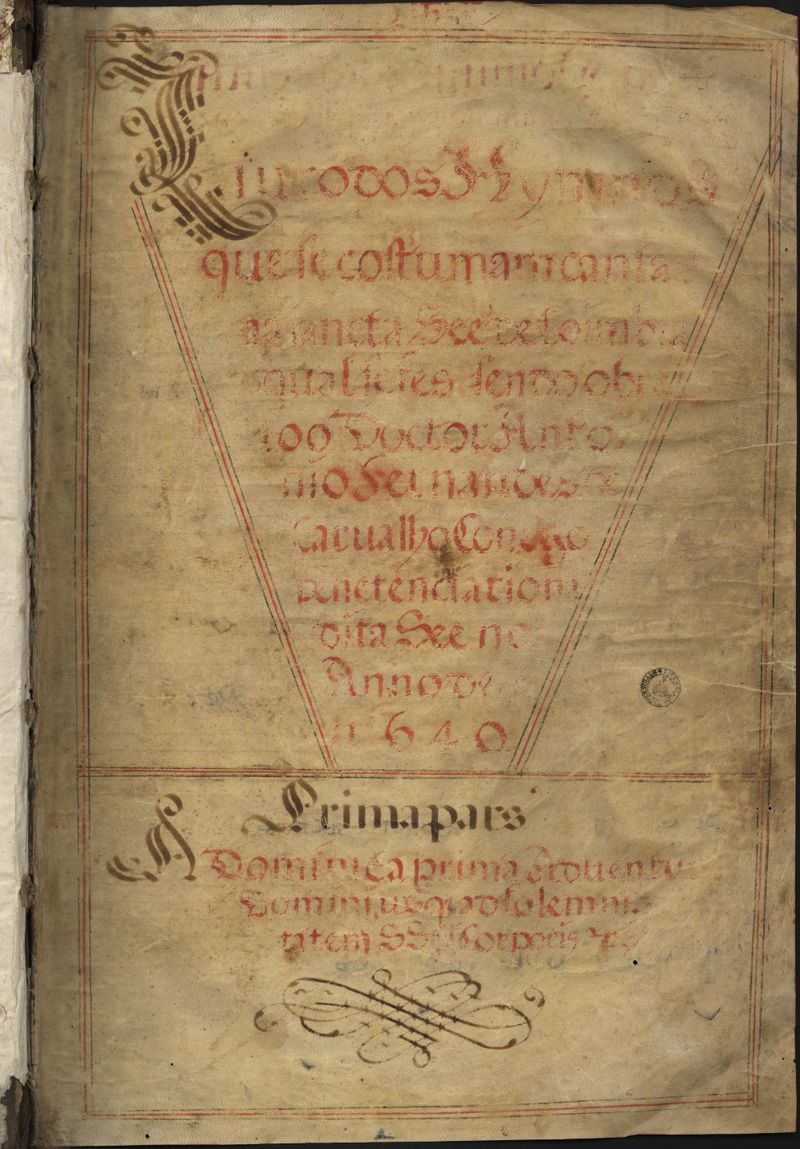 Liuro dos Hymnos
que se costumam canta
na sancta See de Coimbra
qual se fes sendo obre
Doctor Anto
nio Fernandes de
Carualho Conego
penetenciario
dita See no
Anno de
1640
Prima pars
A Dominica prima Aduentus
Domini usq ad solemni
tatem SSmi Corporis